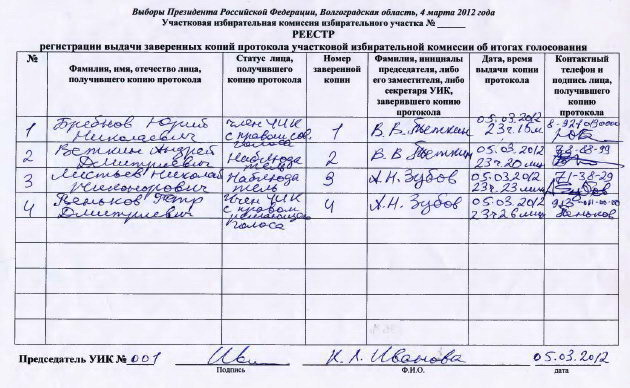 Выборы Президента Российской Федерации, Волгоградская область, 4 марта 2012 года
Участковая избирательная комиссия избирательного участка № ______
РЕЕСТР
регистрации выдачи заверенных копий протокола участковой избирательной комиссии об итогах голосования
№ Фамилия, имя, отчество лица, получившего копию протокола Статус лица, получившего копию протокола Номер заверенной копии Фамилия, инициалы председателя, либо его заместителя, либо секретаря УИК, заверившего копию протокола Дата, время выдачи копии протокола Контактный телефон и подпись лица, получившего копию протокола
1 Гребнов Юрий Николаевич член УИК с правом сов. голоса 1 В.В. Веткин 05.03.2012 23ч.15м
2 Веткин Андрей Дмитриевич Наблюдатель 2 В.В Веткин 05.03.2012 23ч 20 мин 38-83-99
3 Листьев Николай Никонорович Наблюдатель 3 А.Н. Зубов 05.03.2012 23ч. 23 мин 71-38-29
4 Пеньков Петр Дмитриевич Член УИК с правом решающего голоса 4 А.Н. Зубов 05.03.2012 23ч 26 мин Пеньков
Председатель УИК № 001 К. Л. Иванова 05.03.2012
Подпись Ф.И.О. дата